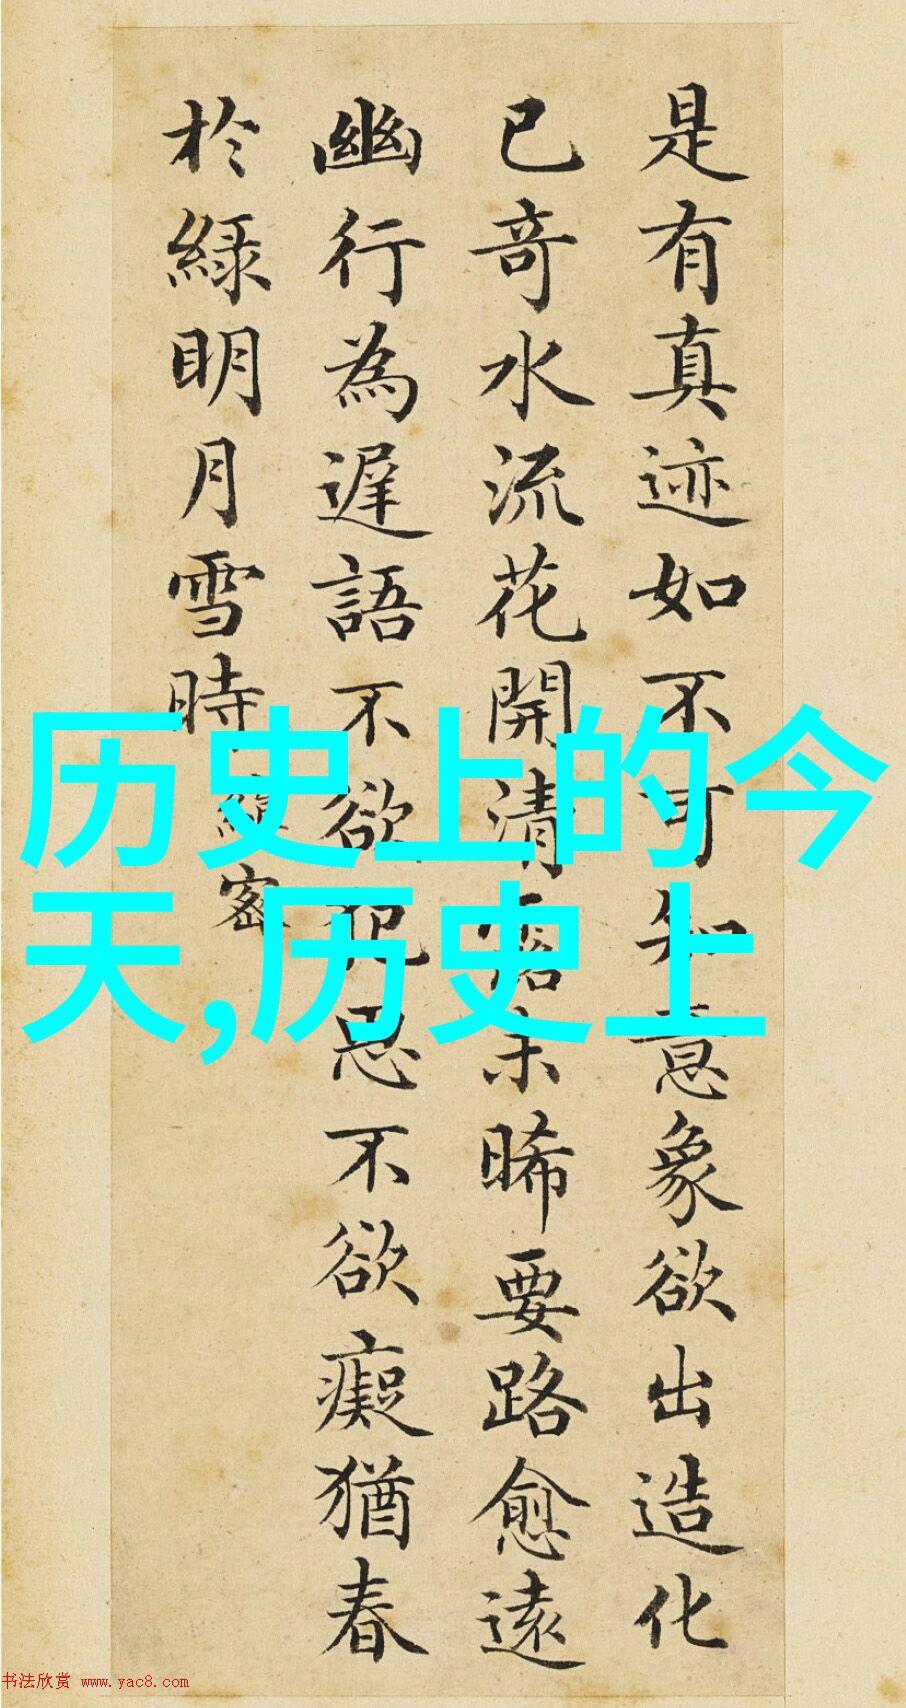 是有真迹如不可知意象欲出造化
已奇水流花開清露未晞要路愈遠
幽行為遲語不欲犯思不欲癡猶春
於綠明月雪時
縝密
历史上的今
天,历史上
书法欣赏 www.yac8.com